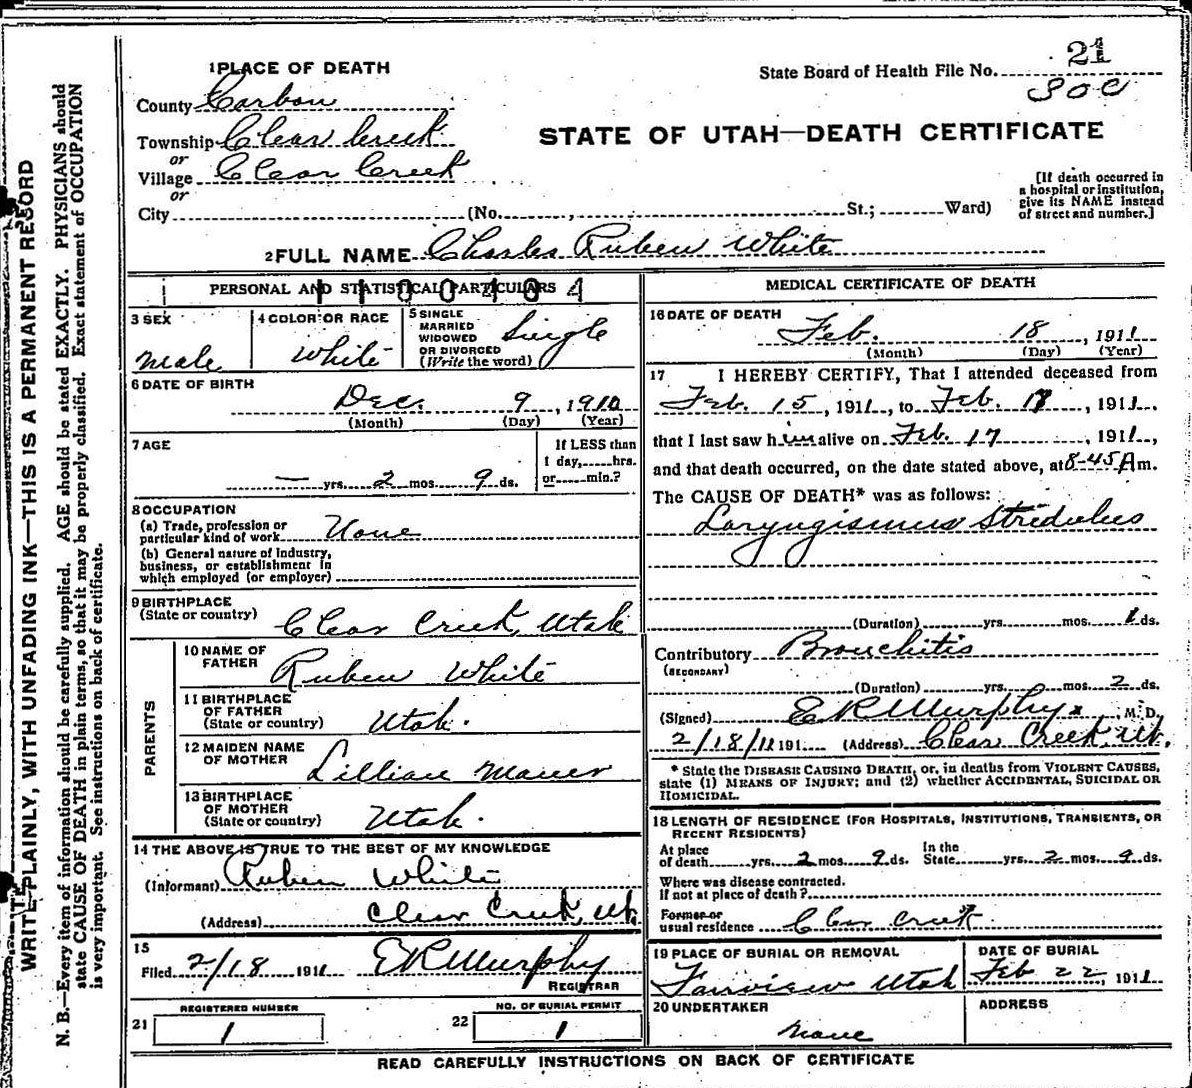 WRITE PLAINLY, WITH UNFADING INK—THIS IS A PERMANENT RECORD
N. B.—Every item of information should be carefully supplied. AGE should be stated EXACTLY. PHYSICIANS should
state CAUSE OF DEATH in plain terms, so that it may be properly classified. Exact statement of OCCUPATION
is very important. See instructions on back of certificate.
1 PLACE OF DEATH
State Board of Health File No. 21
County Carbon
STATE OF UTAH—DEATH CERTIFICATE
Township Clear Creek
or
Village Clear Creek
or
City (No. , St.; Ward)
[If death occurred in
a hospital or institution,
give its NAME instead
of street and number.]
2 FULL NAME Charles Ruben White
PERSONAL AND STATISTICAL PARTICULARS
3 SEX
male
4 COLOR OR RACE
white
5 SINGLE
MARRIED
WIDOWED
OR DIVORCED
(Write the word)
Single
6 DATE OF BIRTH
Dec. 9, 1910
(Month) (Day) (Year)
7 AGE
— yrs. 2 mos. 9 ds.
If LESS than
1 day, hrs.
or min.?
8 OCCUPATION
(a) Trade, profession or
particular kind of work None
(b) General nature of industry,
business, or establishment in
which employed (or employer)
9 BIRTHPLACE
(State or country) Clear Creek, Utah
PARENTS
10 NAME OF
FATHER Ruben White
11 BIRTHPLACE
OF FATHER
(State or country) Utah.
12 MAIDEN NAME
OF MOTHER Lillian
13 BIRTHPLACE
OF MOTHER
(State or country) Utah.
14 THE ABOVE IS TRUE TO THE BEST OF MY KNOWLEDGE
(Informant) Ruben White
(Address) Clear Creek, Ut.
15
Filed 2/18 1911 ER Murphy
REGISTRAR
REGISTERED NUMBER
21 1
NO. OF BURIAL PERMIT
22 1
MEDICAL CERTIFICATE OF DEATH
16 DATE OF DEATH
Feb. 18, 1911
(Month) (Day) (Year)
17 I HEREBY CERTIFY, That I attended deceased from
Feb. 15, 1911, to Feb. 18, 1911.
that I last saw him alive on Feb. 17, 1911,
and that death occurred, on the date stated above, at 8-45 Am.
The CAUSE OF DEATH* was as follows:
Laryngismus Stridulus
(Duration) yrs. mos. 1 ds.
Contributory Bronchitis
(SECONDARY)
(Duration) yrs. mos. 2 ds.
(Signed) ER Murphy, M. D.
2/18/11 191 (Address) Clear Creek, Ut.
* State the DISEASE CAUSING DEATH, or, in deaths from VIOLENT CAUSES,
state (1) MEANS OF INJURY; and (2) whether ACCIDENTAL, SUICIDAL OR
HOMICIDAL.
18 LENGTH OF RESIDENCE (FOR HOSPITALS, INSTITUTIONS, TRANSIENTS, OR
RECENT RESIDENTS)
At place
of death yrs. 2 mos. 9 ds.
In the
State yrs. 2 mos. 9 ds.
Where was disease contracted.
If not at place of death?
Former or
usual residence Clear Creek.
19 PLACE OF BURIAL OR REMOVAL
Fairview Utah
DATE OF BURIAL
Feb 22, 1911
20 UNDERTAKER
None
ADDRESS
READ CAREFULLY INSTRUCTIONS ON BACK OF CERTIFICATE